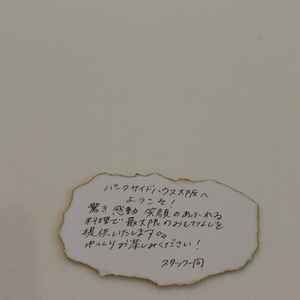 パークサイドハウス大阪へ
ようこそ!
驚き 感動 笑顔のあふれる
料理で最大限のおもてなしを
提供いたします。
ゆっくりお楽しみください!
スタッフ一同